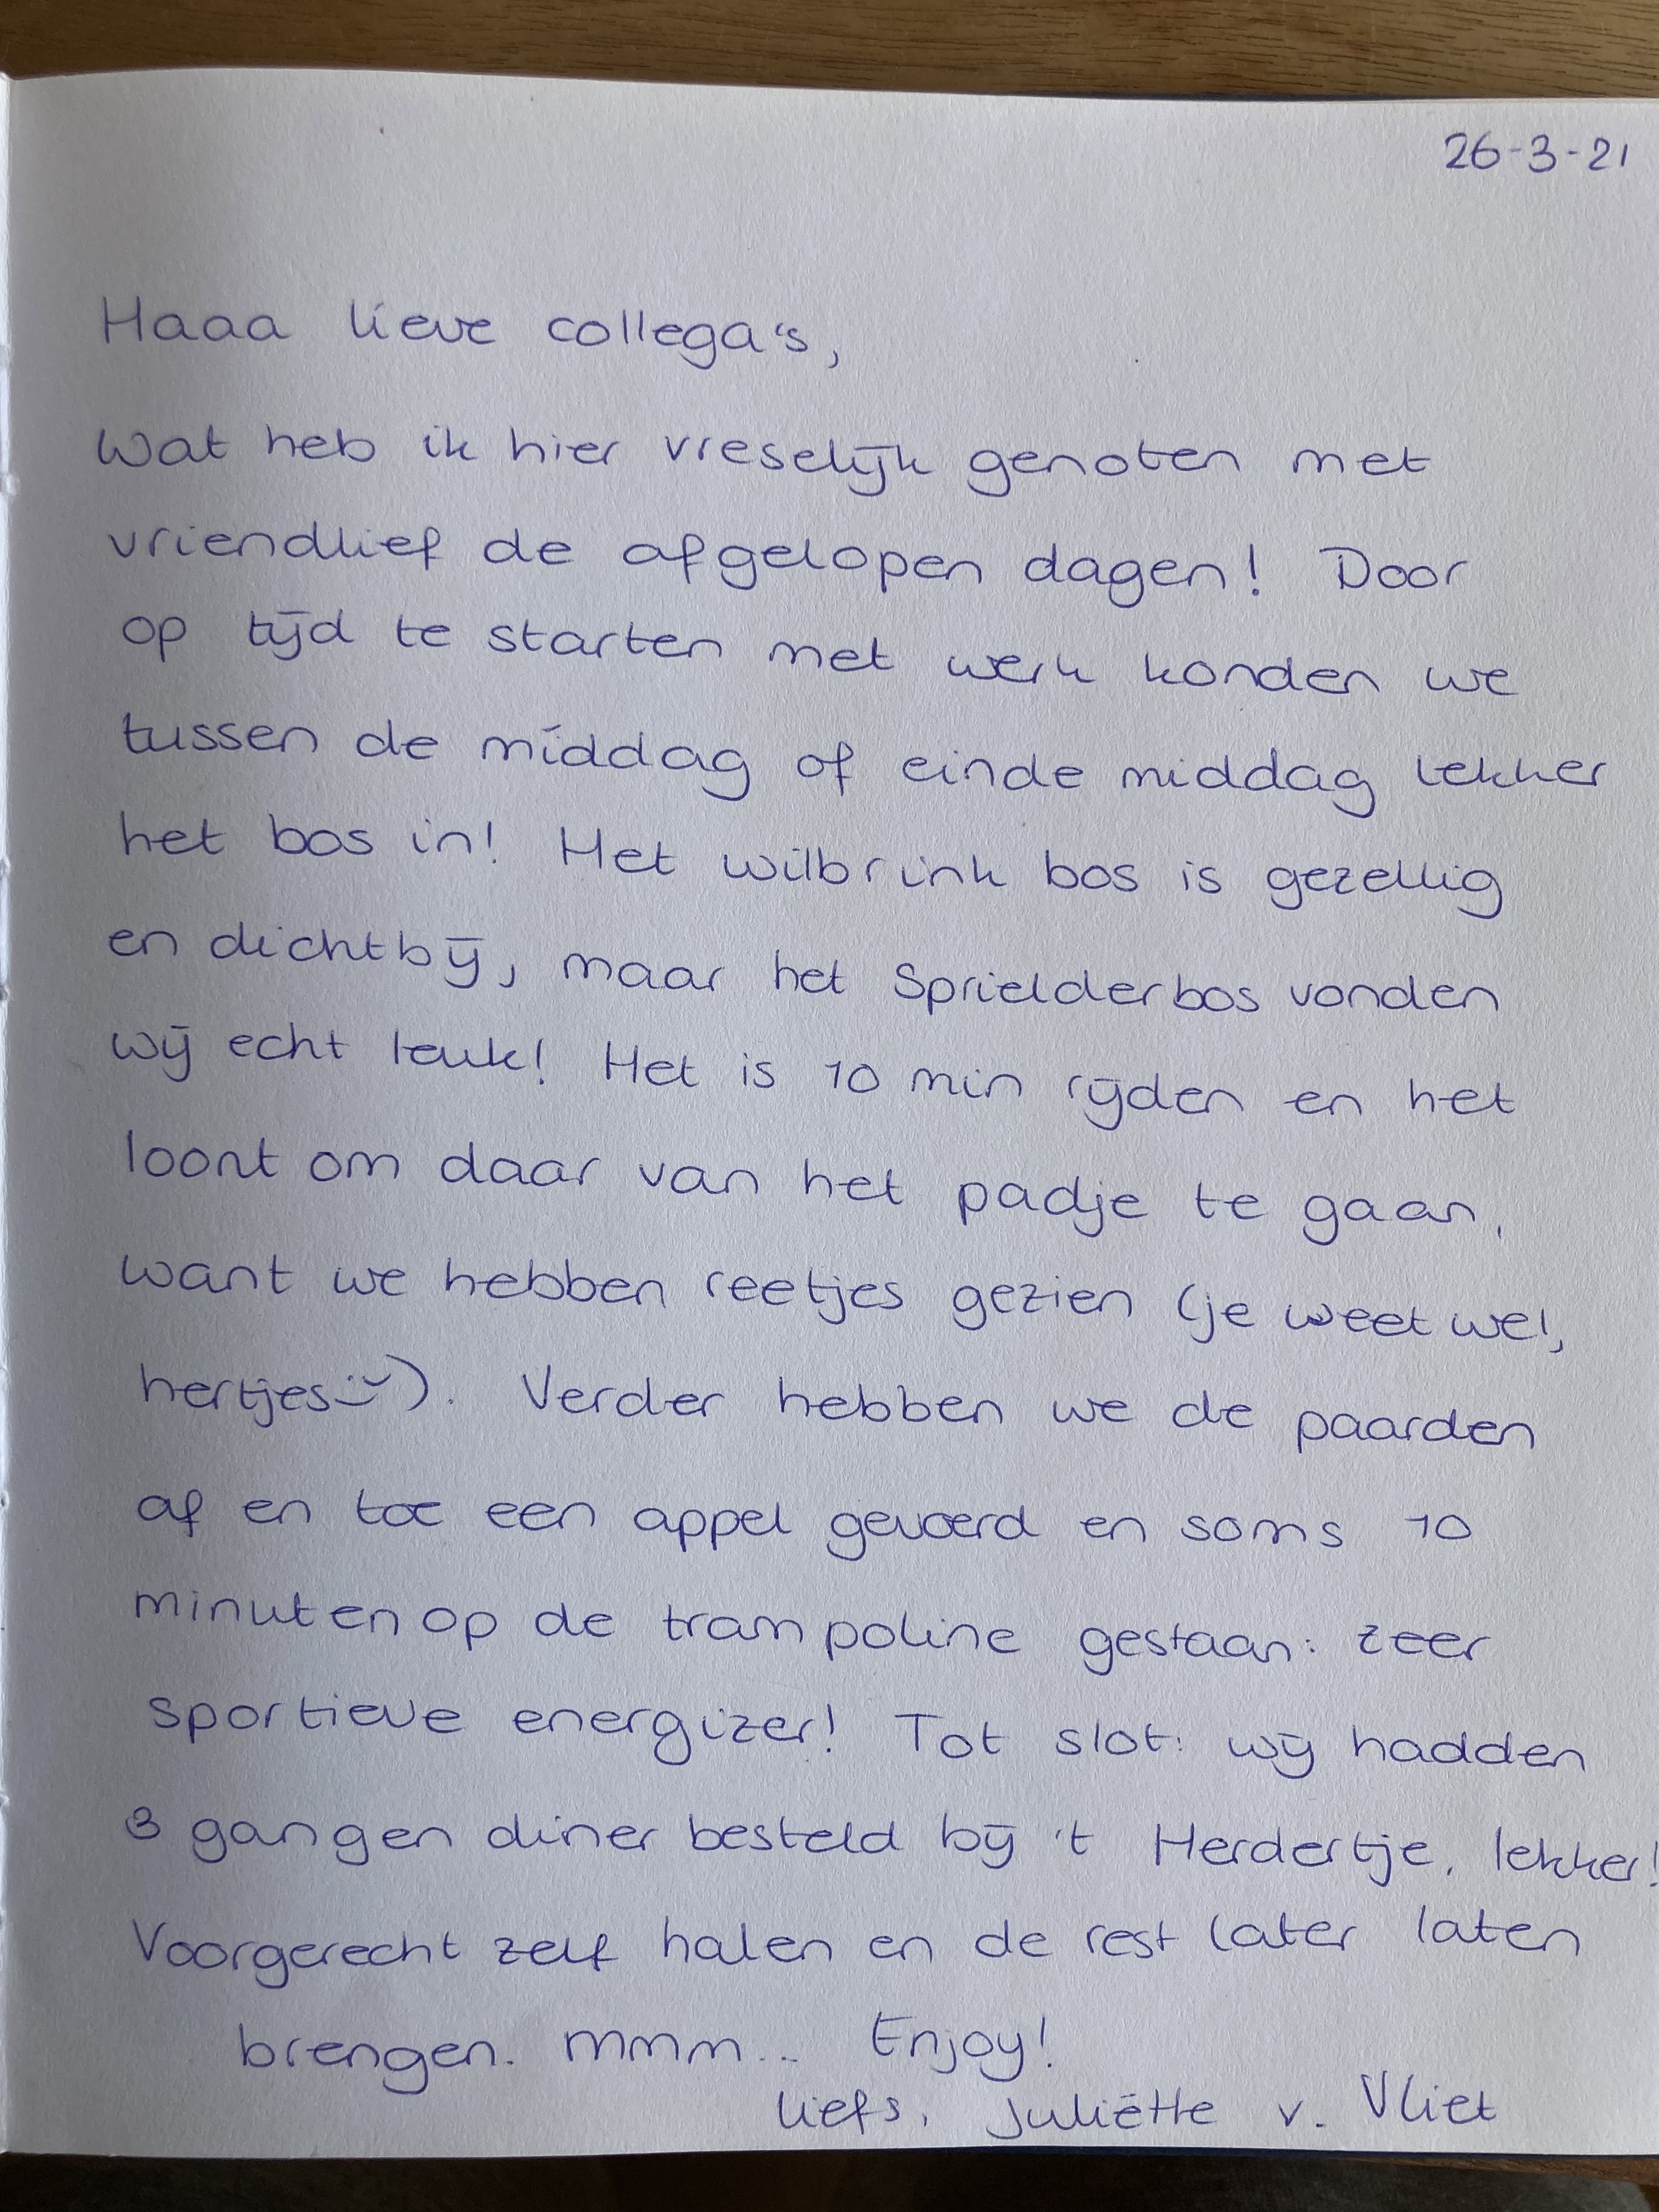 26-3-21
Haaa lieve collega's,
Wat heb ik hier vreselijk genoten met
vriendlief de afgelopen dagen! Door
op tijd te starten met werk konden we
tussen de middag of einde middag lekker
het bos in! Het wilbrink bos is gezellig
en dichtbij, maar het Sprielderbos vonden
wij echt leuk! Het is 10 min rijden en het
loont om daar van het padje te gaan,
want we hebben reetjes gezien (je weet wel,
hertjes :-)). Verder hebben we de paarden
af en toe een appel gevoerd en soms 10
minuten op de trampoline gestaan: zeer
sportieve energizer! Tot slot: wij hadden
3 gangen diner besteld bij 't Herdertje, lekker!
Voorgerecht zelf halen en de rest later laten
brengen. mmm... Enjoy!
liefs, Juliëtte v. Vliet